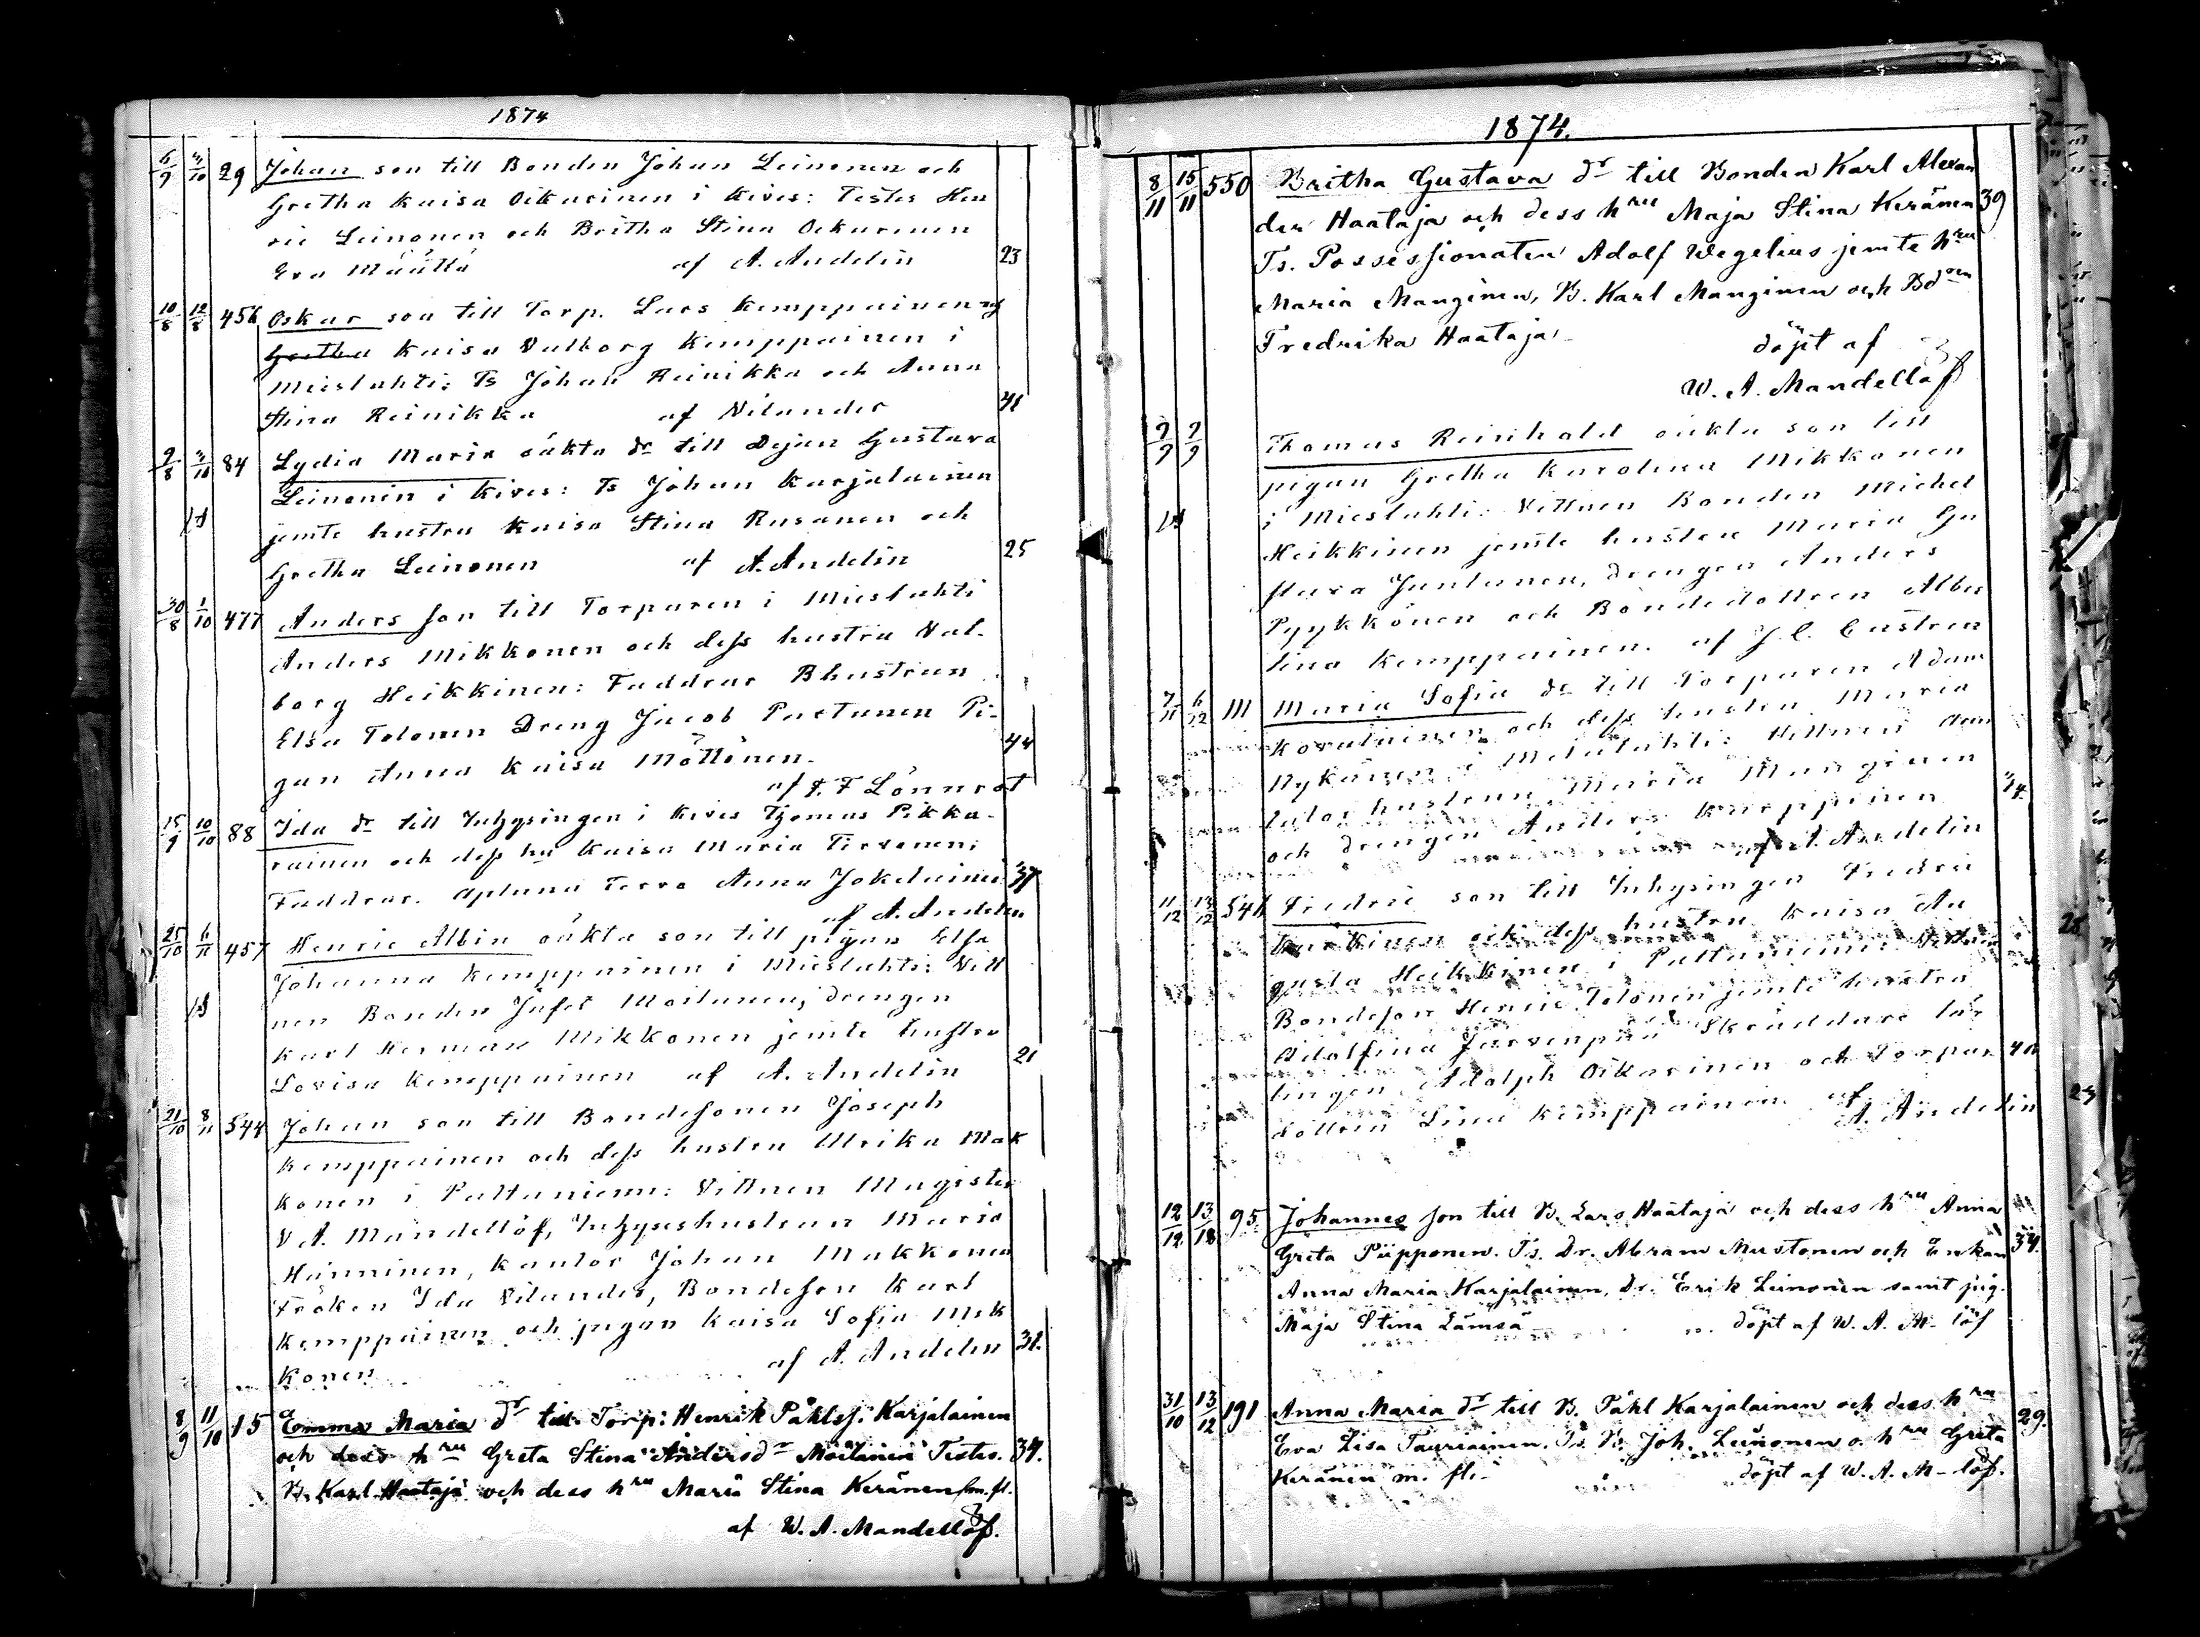 1874
6/9 4/10 29 Johan son till Bonden Johan Leinonen och
Gretha Kaisa Oikarinen i Kives: Testes Hen
ric Leinonen och Britha Stina Oikarinen
Eva Määttä af A. Andelin 23
10/8 12/8 456 Oskar son till Torp. Lars Kemppainen och
Gretha Kaisa Valborg Kemppainen i
Mieslahti: Ts Johan Reinikka och Anna
Stina Reinikka af Vilander 41
9/8 4/10 84 Lydia Maria oäkta dr till Dejan Gustava
Leinonin i Kives: Ts Johan Karjalainen
jemte hustru Kaisa Stina Rusanen och
Gretha Leinonen af A. Andelin 25
30/8 1/10 477 Anders son till Torparen i Mieslahti
Anders Mikkonen och dess hustru Val-
borg Heikkinen: Faddrar Bhustrun
Elsa Tolonen Dreng Jacob Partanen Pi-
gan Anna Kaisa Möttönen. 44
af F. F Lönnrot
15/9 10/10 88 Ida dr till Inhysingen i Kives Tomas Pikka-
rainen och dess hu Kaisa Maria Tervonen:
Faddrar. Anna 37
af A. Andelin
25/10 6/11 457 Henric Albin oäkta son till pigan Elsa
Johanna Kemppainen i Mieslahti: Vitt
nen Bonden Jafet Moilanen, drengen
Karl Herman Mikkonen jemte hustru
Lovisa Kemppainen af A. Andelin 21
21/10 8/11 544 Johan son till Bondesonen Joseph
Kemppainen och dess hustru Ulrika Mak
konen i Paltaniemi: Vittnen Magister
V A. Mandellöf, Inhyseshustrun Maria
Hänninen, Kantor Johan Makkonen
Fröken Ida Vilander, Bondeson Karl
Kemppainen och pigan Kaisa Sofia Mik
konen af A. Andelin 31.
8/9 11/10 15 Emma Maria dr till Torp: Henrik Påhlss. Karjalainen
och dess hru Greta Stina Andersdr Moilanen Testes. 34.
B. Karl Haataja och dess hru Maria Stina Keränen m. fl.
af W. A. Mandellöf.
1874.
8/11 15/11 550 Britha Gustava dr till Bonden Karl Alexan
der Haataja och dess hru Maja Stina Keränen 39
Ts. Possessionaten Adolf Wegelius jemte hru
Maria Manginen, B. Karl Manginen och Bdom
Fredrika Haataja döpt af
W. A. Mandellöf
9/9 9/9 Thomas Reinhold oäkta son till
pigan Gretha Karolina Mikkonen
i Mieslahti: Vittnen Bonden Michel
Heikkinen jemte hustru Maria Gu
stava Juntunen, drengen Anders
Pyykkönen och Bondedottren Alber
tina Kemppainen. af J. C. Castren
7/11 6/12 111 Maria Sofia dr till Torparen Adam
Kovalainen och dess hustru Maria
Nykänen i Melalahti: Vittnen
hustrun Maria Manginen
och drengen Anders Karppinen 14.
af A. Andelin
11/12 13/12 541 Fredric son till Inhysingen Fredric
Karkinen och dess hustru Kaisa Au
gusta Heikkinen i Paltaniemi: Vittnen
Bondeson Henric Tolonen jemte hustru
Adolfina Järvenpää Skräddare lär
lingen Adolph Oikarinen och Torpar 40
dottren Lina Kemppainen af
A. Andelin
12/12 13/12 95. Johannes son till B. Lars Haataja och dess hru Anna
Greta Piipponen. Ts. Dr. Abram Mustonen och Enkan 34.
Anna Maria Karjalainen, Dr. Erik Leinonen samt pig.
Maja Stina Lämsä döpt af W. A. M-löf
31/10 13/12 191 Anna Maria dr till B. Påhl Karjalainen och dess hru
Eva Lisa Tauriainen. Ts. B. Joh. Leinonen o. hru Greta 29.
Keränen m. fl. döpt af W. A. M-löf.